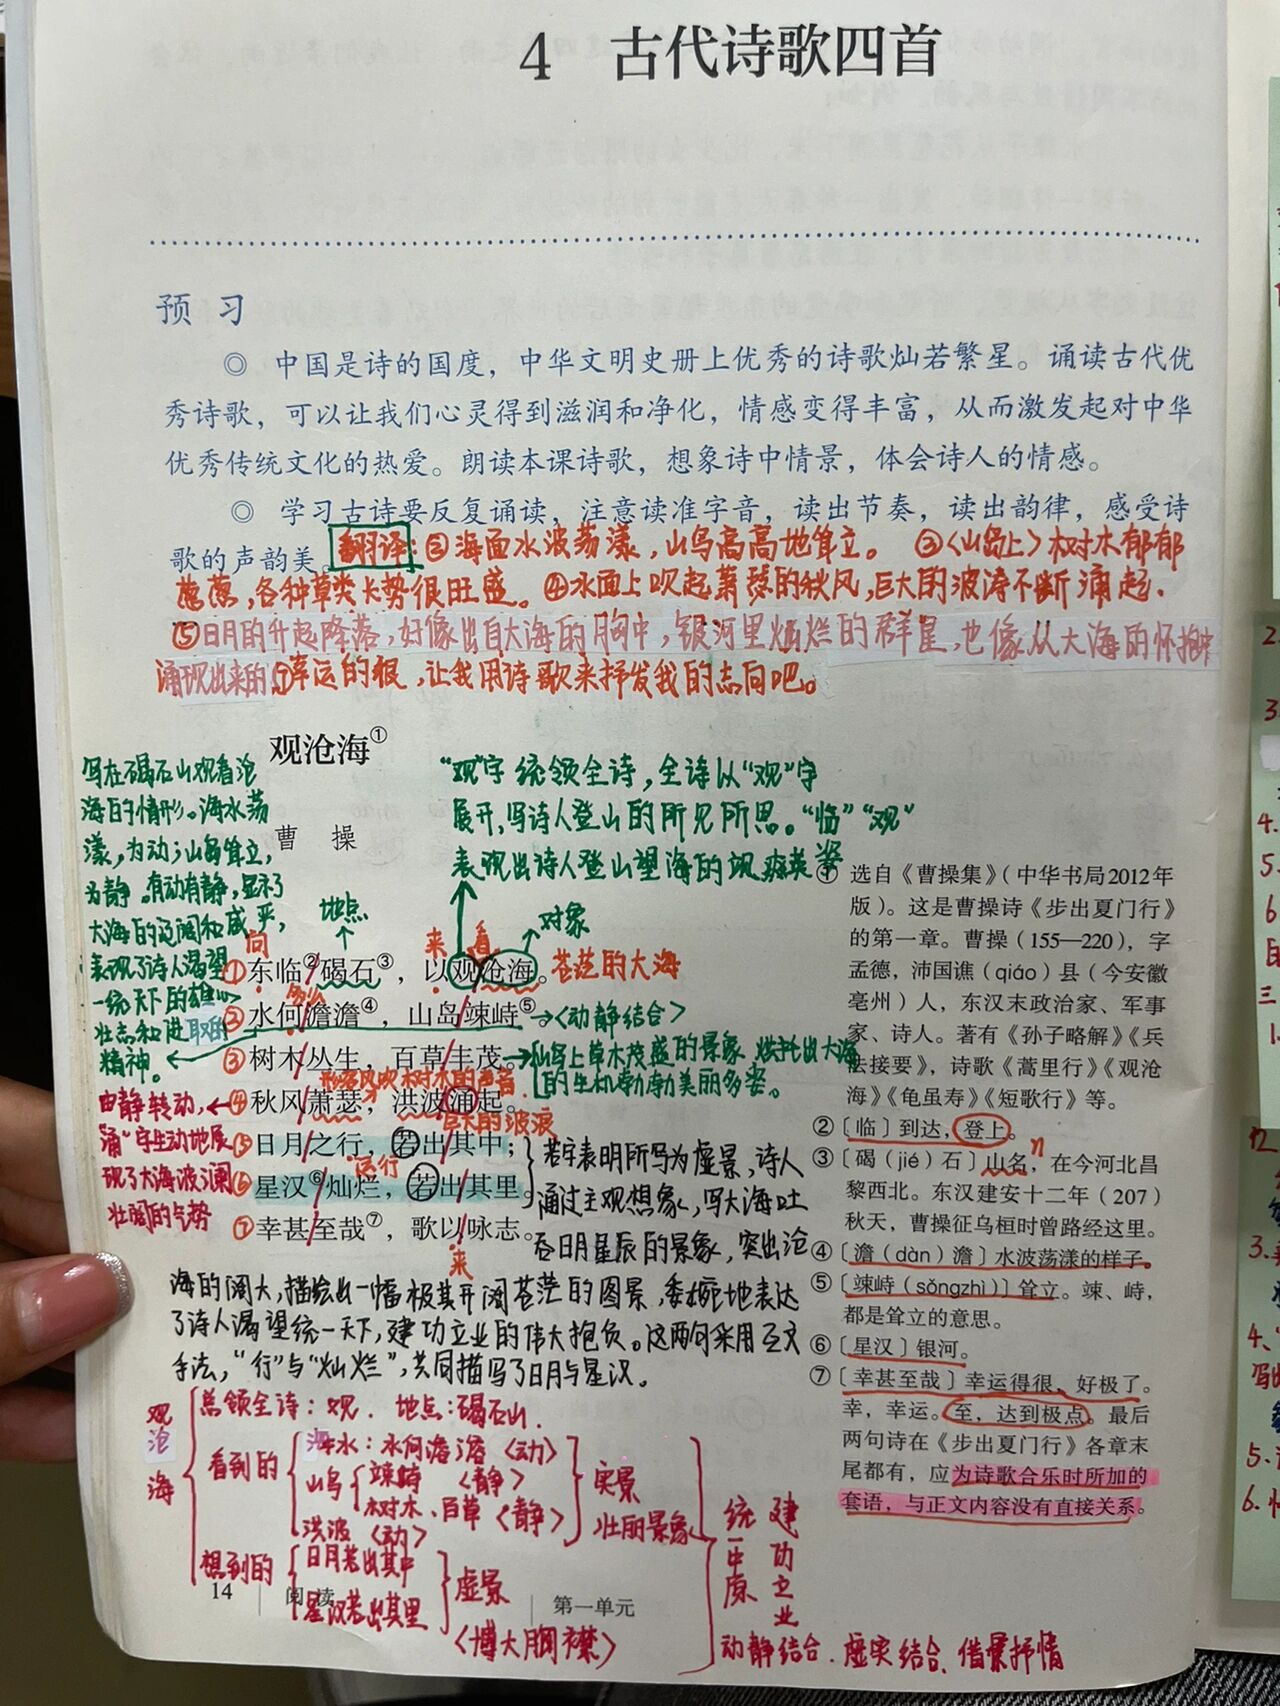 4 古代诗歌四首
预习
◎ 中国是诗的国度，中华文明史册上优秀的诗歌灿若繁星。诵读古代优
秀诗歌，可以让我们心灵得到滋润和净化，情感变得丰富，从而激发起对中华
优秀传统文化的热爱。朗读本课诗歌，想象诗中情景，体会诗人的情感。
◎ 学习古诗要反复诵读，注意读准字音，读出节奏，读出韵律，感受诗
歌的声韵美。
翻译：②海面水波荡漾，山岛高高地耸立。 ③〈山岛上〉树木郁郁
葱葱，各种草类长势很旺盛。④水面上吹起萧瑟的秋风，巨大的波涛不断涌起.
⑤日月的升起降落，好像出自大海的胸中，银河里灿烂的群星，也像从大海的怀抱中
涌现出来的。⑦幸运的很，让我用诗歌来抒发我的志向吧。
观沧海①
曹 操
写在碣石山观看沧
海的情形。海水荡
漾，为动；山岛耸立，
为静。有动有静，显示了
大海的辽阔和威严，
表现了诗人渴望
一统天下的雄心
壮志和进取的
精神。
"观"字统领全诗，全诗以"观"字
展开，写诗人登山的所见所思。"临""观"
表现出诗人登山望海的
地点
对象
向
来
看
①东临②碣石③，以观沧海。苍茫的大海
多么
②水何澹澹④，山岛竦峙⑤。→〈动静结合〉
③树木丛生，百草丰茂。→仙岛上草木茂盛的景象，烘托出大海
的生机勃勃美丽多姿。
形容风吹树木的声音
④秋风萧瑟，洪波涌起。
巨大的波浪
⑤日月之行，若出其中；
运行
⑥星汉⑥灿烂，若出其里。
⑦幸甚至哉⑦，歌以咏志。
来
由静转动，
"涌"字生动地展
现了大海波澜
壮阔的气势
若字表明所写为虚景，诗人
通过主观想象，写大海吐
吞日月星辰的景象，突出沧
海的阔大，描绘出一幅极其开阔苍茫的图景，委婉地表达
了诗人渴望统一天下，建功立业的伟大抱负。这两句采用互文
手法，"行"与"灿烂"，共同描写了日月与星汉。
① 选自《曹操集》（中华书局2012年
版）。这是曹操诗《步出夏门行》
的第一章。曹操（155—220），字
孟德，沛国谯（qiáo）县（今安徽
亳州）人，东汉末政治家、军事
家、诗人。著有《孙子略解》《兵
法接要》，诗歌《蒿里行》《观沧
海》《龟虽寿》《短歌行》等。
②〔临〕到达，登上。
③〔碣（jié）石〕山名，在今河北昌
黎西北。东汉建安十二年（207）
秋天，曹操征乌桓时曾路经这里。
④〔澹（dàn）澹〕水波荡漾的样子。
⑤〔竦峙（sǒngzhì）〕耸立。竦、峙，
都是耸立的意思。
⑥〔星汉〕银河。
⑦〔幸甚至哉〕幸运得很，好极了。
幸，幸运。至，达到极点。最后
两句诗在《步出夏门行》各章末
尾都有，应为诗歌合乐时所加的
套语，与正文内容没有直接关系。
观沧海
总领全诗：观. 地点：碣石山.
看到的
海水：水何澹澹〈动〉
山岛
竦峙〈静〉
树木、百草〈静〉
洪波〈动〉
实景
壮丽景象
想到的
日月若出其中
星汉若出其里
虚景
〈博大胸襟〉
统一中原
建功立业
动静结合. 虚实结合、借景抒情
14 阅读 第一单元